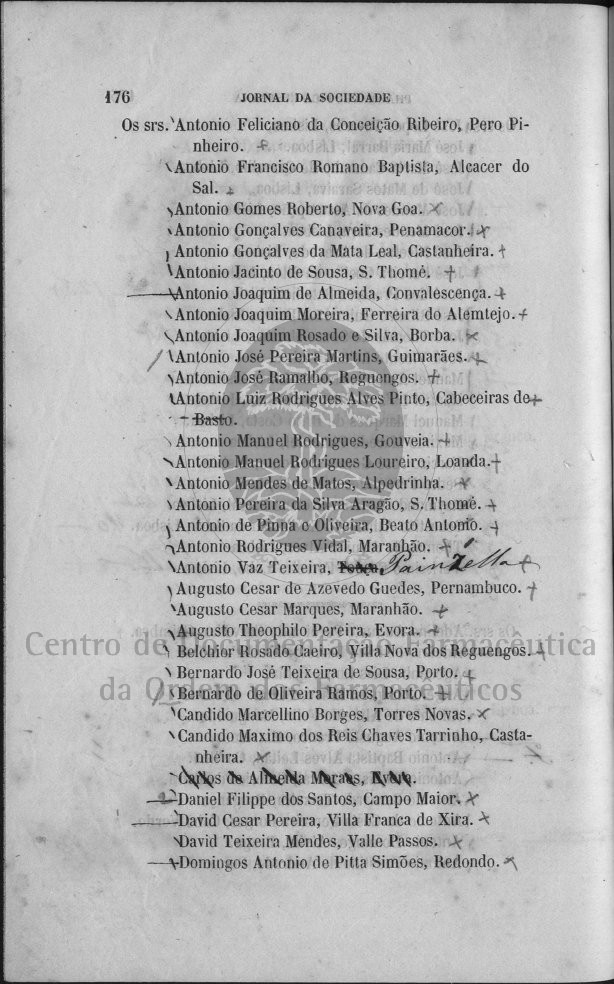 176 JORNAL DA SOCIEDADE
Os srs. Antonio Feliciano da Conceição Ribeiro, Pero Pi-
nheiro.
Antonio Francisco Romano Baptista, Alcacer do
Sal.
Antonio Gomes Roberto, Nova Goa.
Antonio Gonçalves Canaveira, Penamacor.
Antonio Gonçalves da Mata Leal, Castanheira.
Antonio Jacinto de Sousa, S. Thomé.
Antonio Joaquim de Almeida, Convalescença.
Antonio Joaquim Moreira, Ferreira do Alemtejo.
Antonio Joaquim Rosado e Silva, Borba.
Antonio José Pereira Martins, Guimarães.
Antonio José Ramalho, Reguengos.
Antonio Luiz Rodrigues Alves Pinto, Cabeceiras de
Basto.
Antonio Manuel Rodrigues, Gouveia.
Antonio Manuel Rodrigues Loureiro, Loanda.
Antonio Mendes de Matos, Alpedrinha.
Antonio Pereira da Silva Aragão, S. Thomé.
Antonio de Pinna e Oliveira, Beato Antonio.
Antonio Rodrigues Vidal, Maranhão.
Antonio Vaz Teixeira,
Augusto Cesar de Azevedo Guedes, Pernambuco.
Augusto Cesar Marques, Maranhão.
Augusto Theophilo Pereira, Evora.
Belchior Rosado Caeiro, Villa Nova dos Reguengos.
Bernardo José Teixeira de Sousa, Porto.
Bernardo de Oliveira Ramos, Porto.
Candido Marcellino Borges, Torres Novas.
Candido Maximo dos Reis Chaves Tarrinho, Casta-
nheira.
Carlos de Almeida Moraes, Evora.
Daniel Filippe dos Santos, Campo Maior.
David Cesar Pereira, Villa Franca de Xira.
David Teixeira Mendes, Valle Passos.
Domingos Antonio de Pitta Simões, Redondo.
Centro de Documentação Farmacêutica
da Ordem dos Farmacêuticos